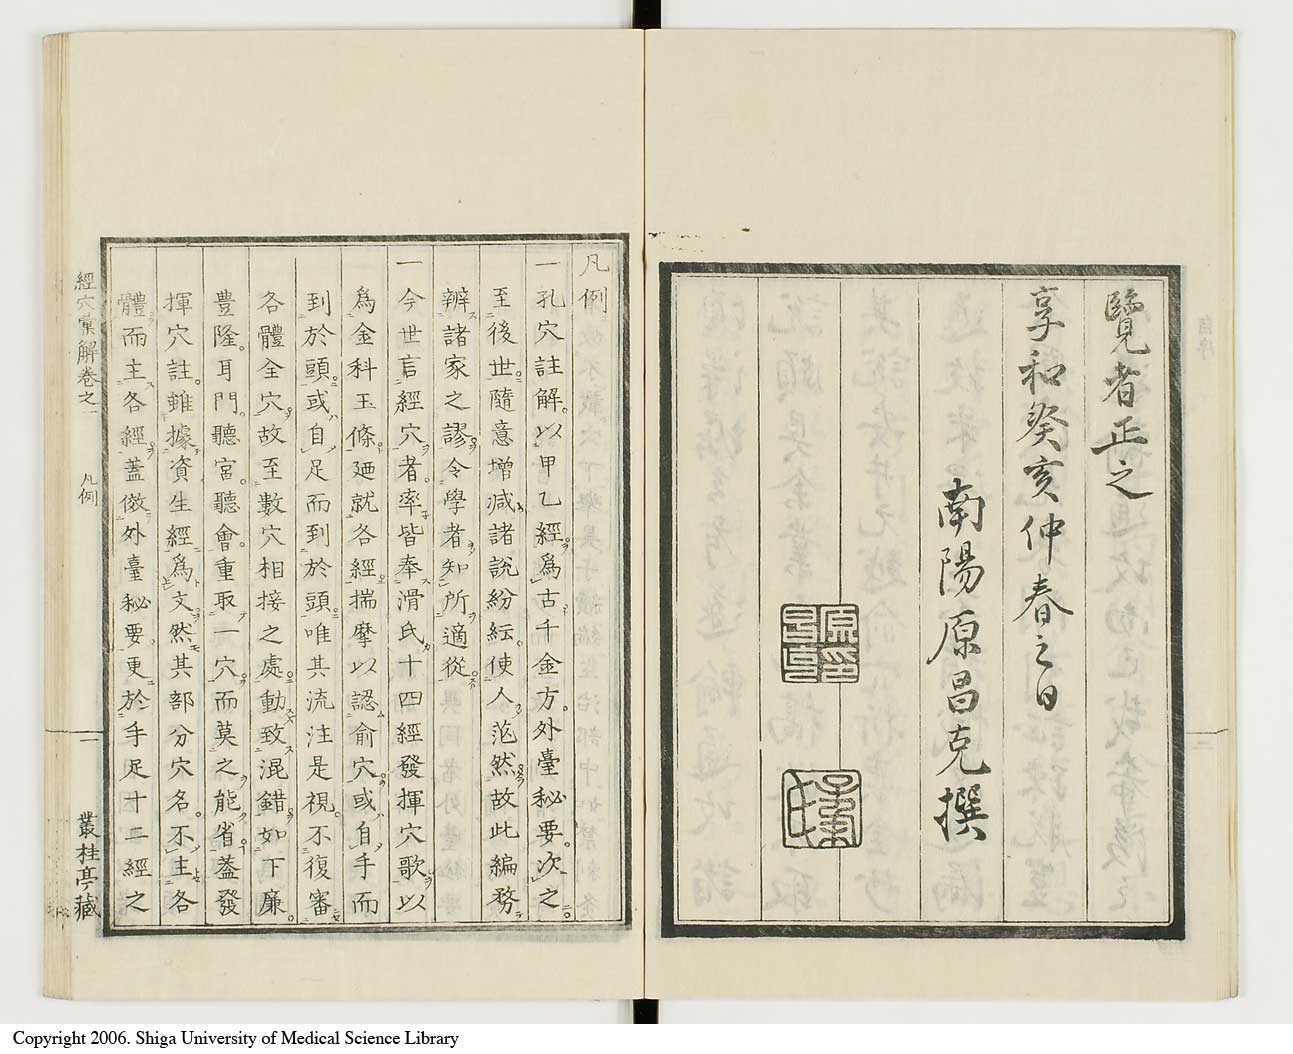 覽者正之
享和癸亥仲春之日
南陽原昌克撰
凡例
一孔穴註解以甲乙經爲古千金方外臺秘要次之
至後世隨意增減諸說紛紜使人茫然故此編務
辨諸家之謬令學者知所適從
一今世言經穴者率皆奉滑氏十四經發揮穴歌以
爲金科玉條廼就各經揣摩以認俞穴或自手而
到於頭或自足而到於頭唯其流注是視不復審
各體全穴故至數穴相接之處動致混錯如下廉
豊隆耳門聽宮聽會重取一穴而莫之能省蓋發
揮穴註雖據資生經爲文然其部分穴名不主各
體而主各經蓋倣外臺秘要更於手足十二經之
經穴彙解卷之一
凡例
一
叢桂亭藏
Copyright 2006. Shiga University of Medical Science Library